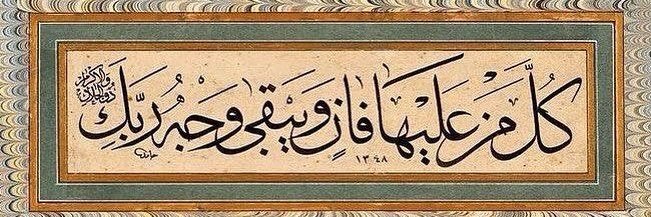 كُلُّ مَنْ عَلَيْهَا فَانٍ وَيَبْقَى وَجْهُ رَبِّكَ
ذو الجلال والاكرام
١٣٤٨
حامد